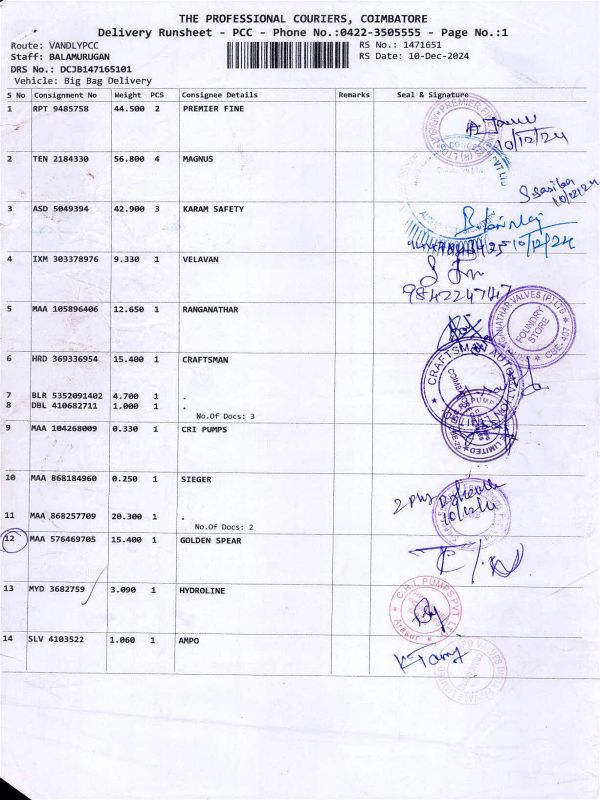 THE PROFESSIONAL COURIERS, COIMBATORE
Delivery Runsheet - PCC - Phone No.:0422-3505555 - Page No.:1
Route: VANDLYPCC
RS No.: 1471651
Staff: BALAMURUGAN
RS Date: 10-Dec-2024
DRS No.: DCJB147165101
Vehicle: Big Bag Delivery
S No Consignment No Weight PCS Consignee Details Remarks Seal & Signature
1 RPT 9485758 44.500 2 PREMIER FINE
10/12/24
2 TEN 2184330 56.800 4 MAGNUS
10/12/24
3 ASD 5049394 42.900 3 KARAM SAFETY
10/12/24
4 IXM 303378976 9.330 1 VELAVAN
9842247147
5 MAA 105896406 12.650 1 RANGANATHAR
RANGANATHAR VALVES (P) LTD
FOUNDRY
STORE
CBE-407
6 HRD 369336954 15.400 1 CRAFTSMAN
CRAFTSMAN AUTOMATION
7 BLR 5352091402 4.700 1 .
8 DBL 410682711 1.000 1 .
No.Of Docs: 3
9 MAA 104268009 0.330 1 CRI PUMPS
10 MAA 868184960 0.250 1 SIEGER
10/12/24
11 MAA 868257709 20.300 1 .
No.Of Docs: 2
12 MAA 576469705 15.400 1 GOLDEN SPEAR
13 MYD 3682759 3.090 1 HYDROLINE
C.R.I. PUMPS PVT LTD
Arasur
14 SLV 4103522 1.060 1 AMPO